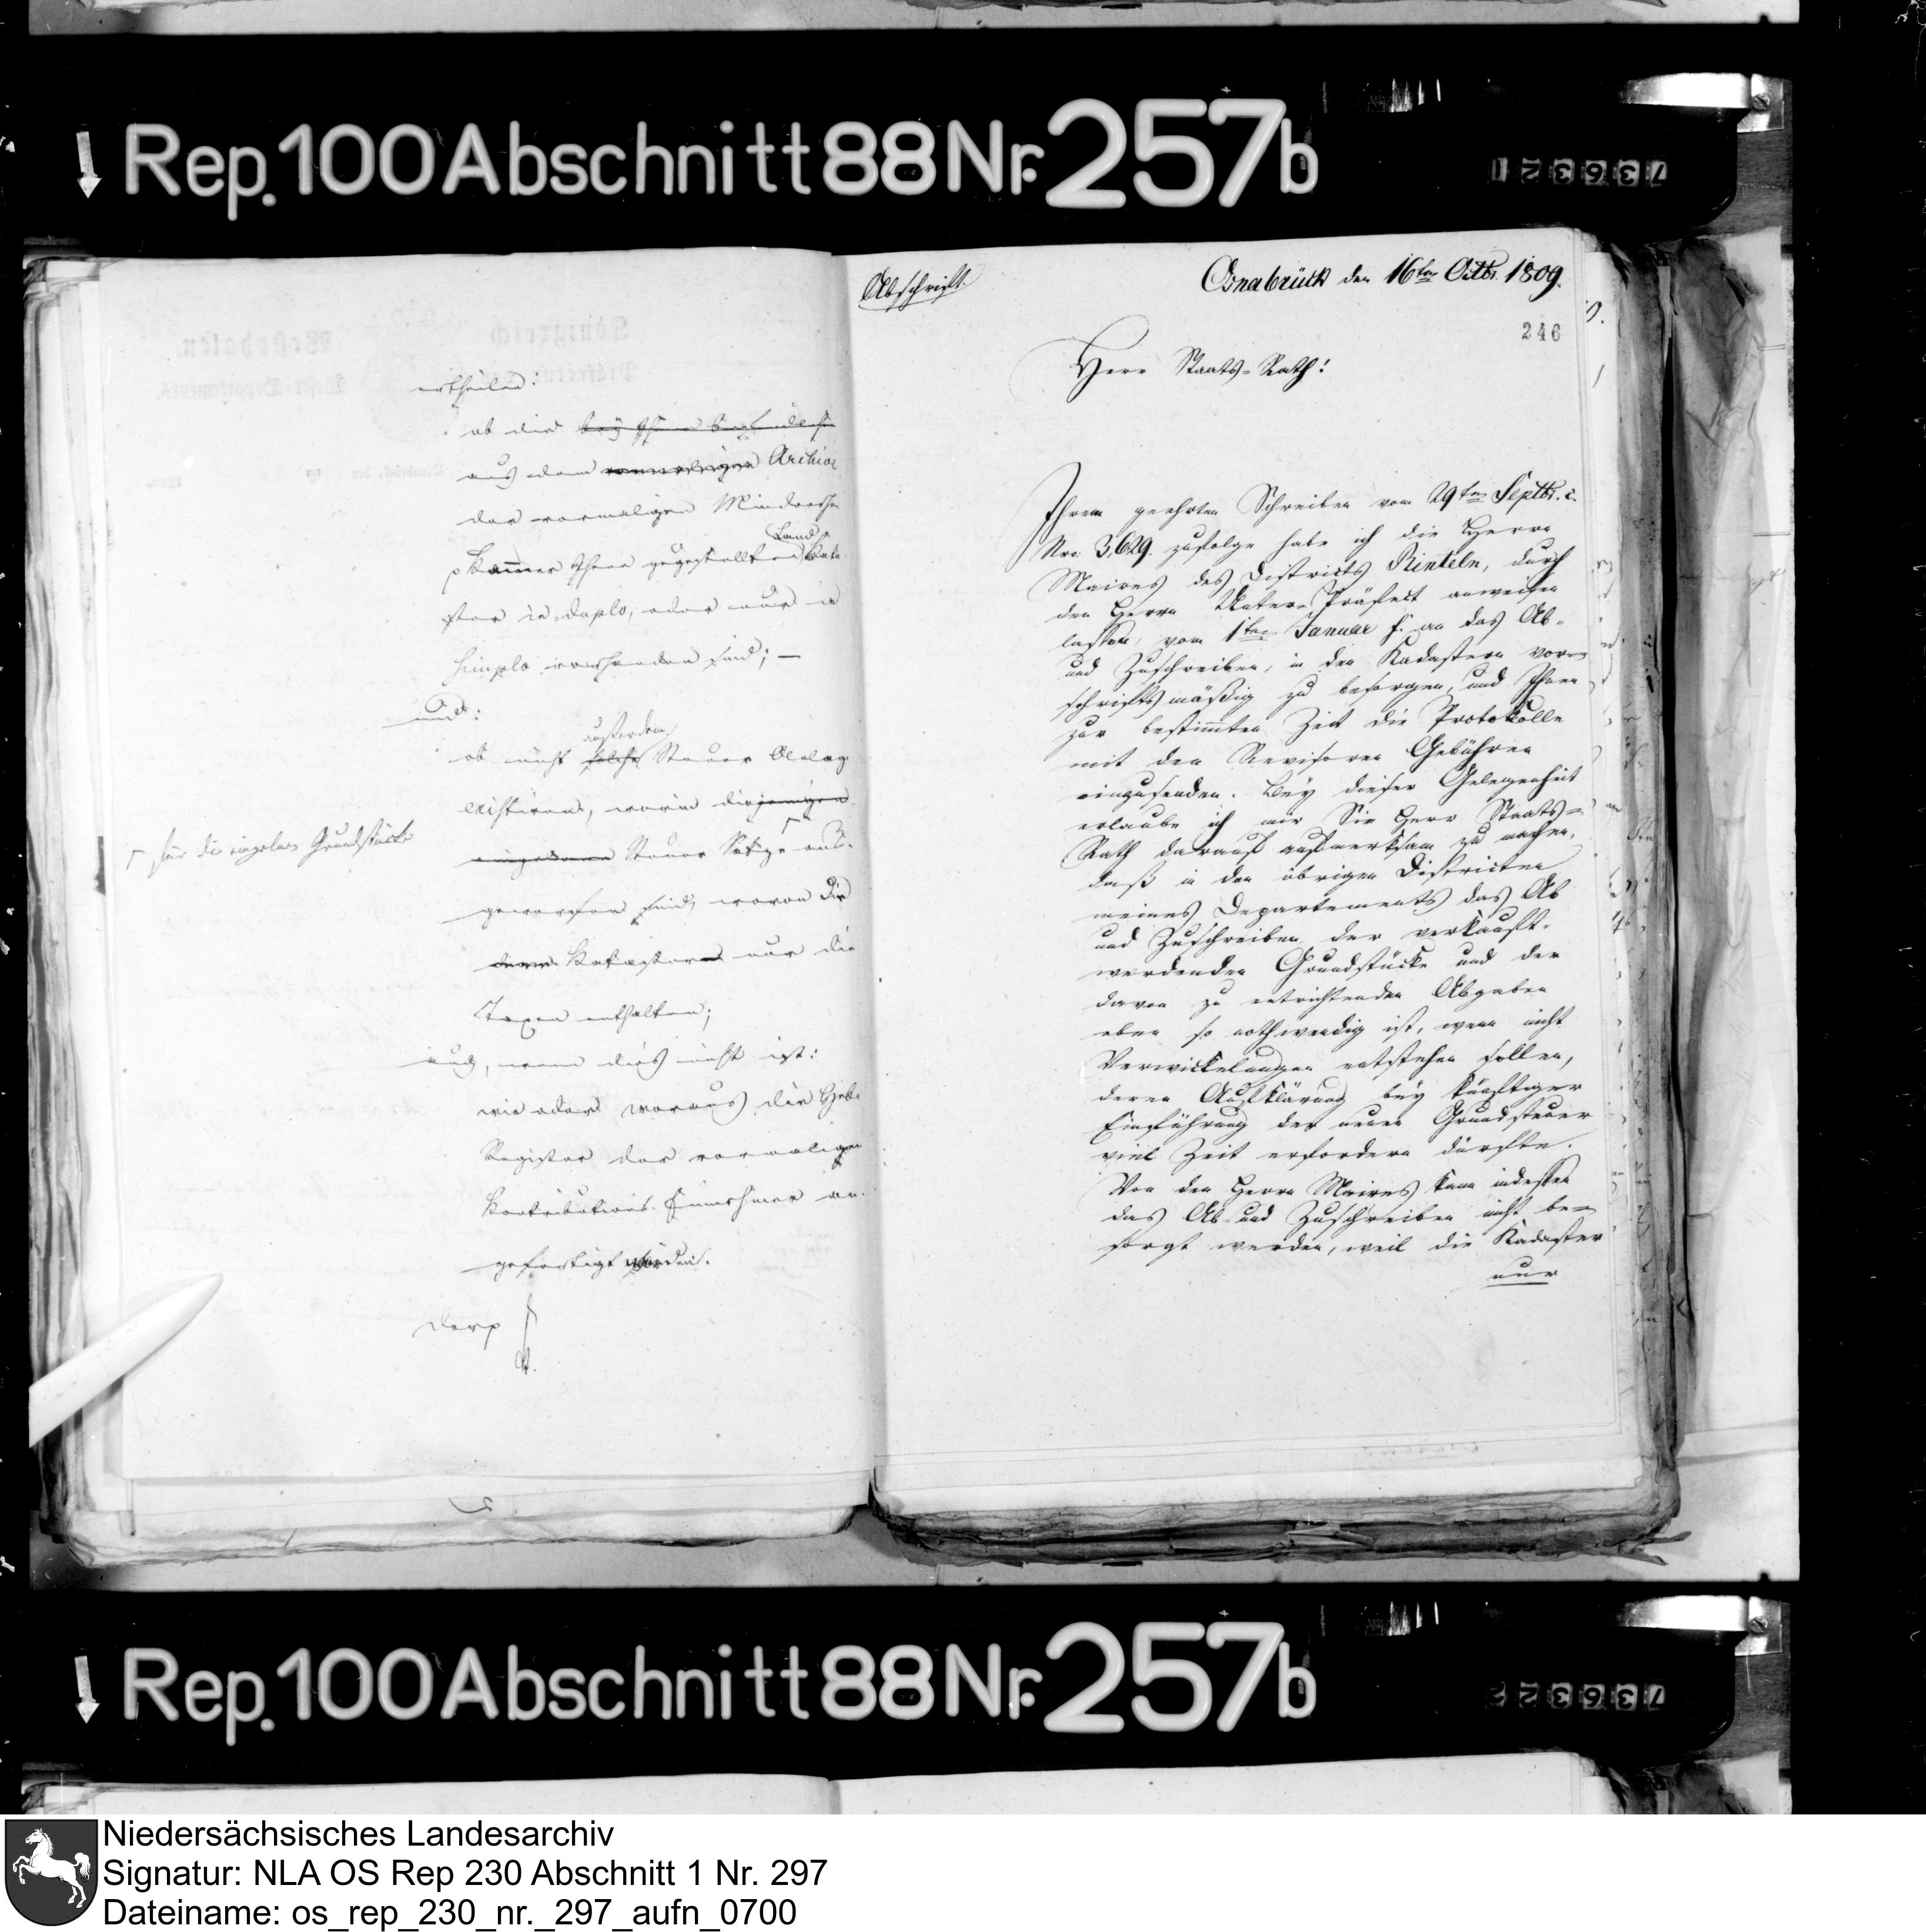 Rep. 100 Abschnitt 88 Nr. 257b
ertheilen:
ob die bey Ihnen
aus dem Archive
der vormaligen Mindenschen
Kammer Ihnen zugestellten Land-Cata-
ster in duplo, oder nur in
simplo vorhanden sind; —
und:
ob nicht solche außerdem Steuer
existiren, worin diejenigen
Steuer Sätze aus-
für die einzelnen Grundstücke
geworfen sind, wovon die
Kataster nur die
Taxen enthalten;
und, wenn dies nicht ist:
wie oder woraus die Hebe-
Register der vormaligen
Contributions-Einnehmer an-
gefertigt würden.
Abschrift.
Osnabrück den 16ten Octbr. 1809.
246
Herr Staats-Rath!
Ihrem geehrten Schreiben vom 29ten Septbr. c.
Nro: 3,629. zufolge habe ich die Herrn
Maires des Districts Rinteln, durch
den Herrn Unter-Präfect anweisen
lassen, vom 1ten Januar f. an das Ab-
und Zuschreiben, in den Kadastern vor-
schriftsmäßig zu besorgen, und Ihnen
zur bestimmten Zeit die Protokolle
mit den Revisoren Gebühren
einzusenden. Bey dieser Gelegenheit
erlaube ich mir Sie Herr Staats-
Rath darauf aufmerksam zu machen,
daß in den übrigen Districten
meines Departements das Ab
und Zuschreiben der verkauft-
werdenden Grundstücke und der
davon zu entrichtenden Abgaben
eben so nothwendig ist, wenn nicht
Verwickelungen entstehen sollen,
deren Aufklärung bey künftiger
Einführung der neuen Grundsteuer
viel Zeit erfordern dürfte.
Von den Herrn Maires kann indessen
das Ab- und Zuschreiben nicht be-
sorgt werden, weil die Kadaster
nur
Rep. 100 Abschnitt 88 Nr. 257b
Niedersächsisches Landesarchiv
Signatur: NLA OS Rep 230 Abschnitt 1 Nr. 297
Dateiname: os_rep_230_nr._297_aufn_0700